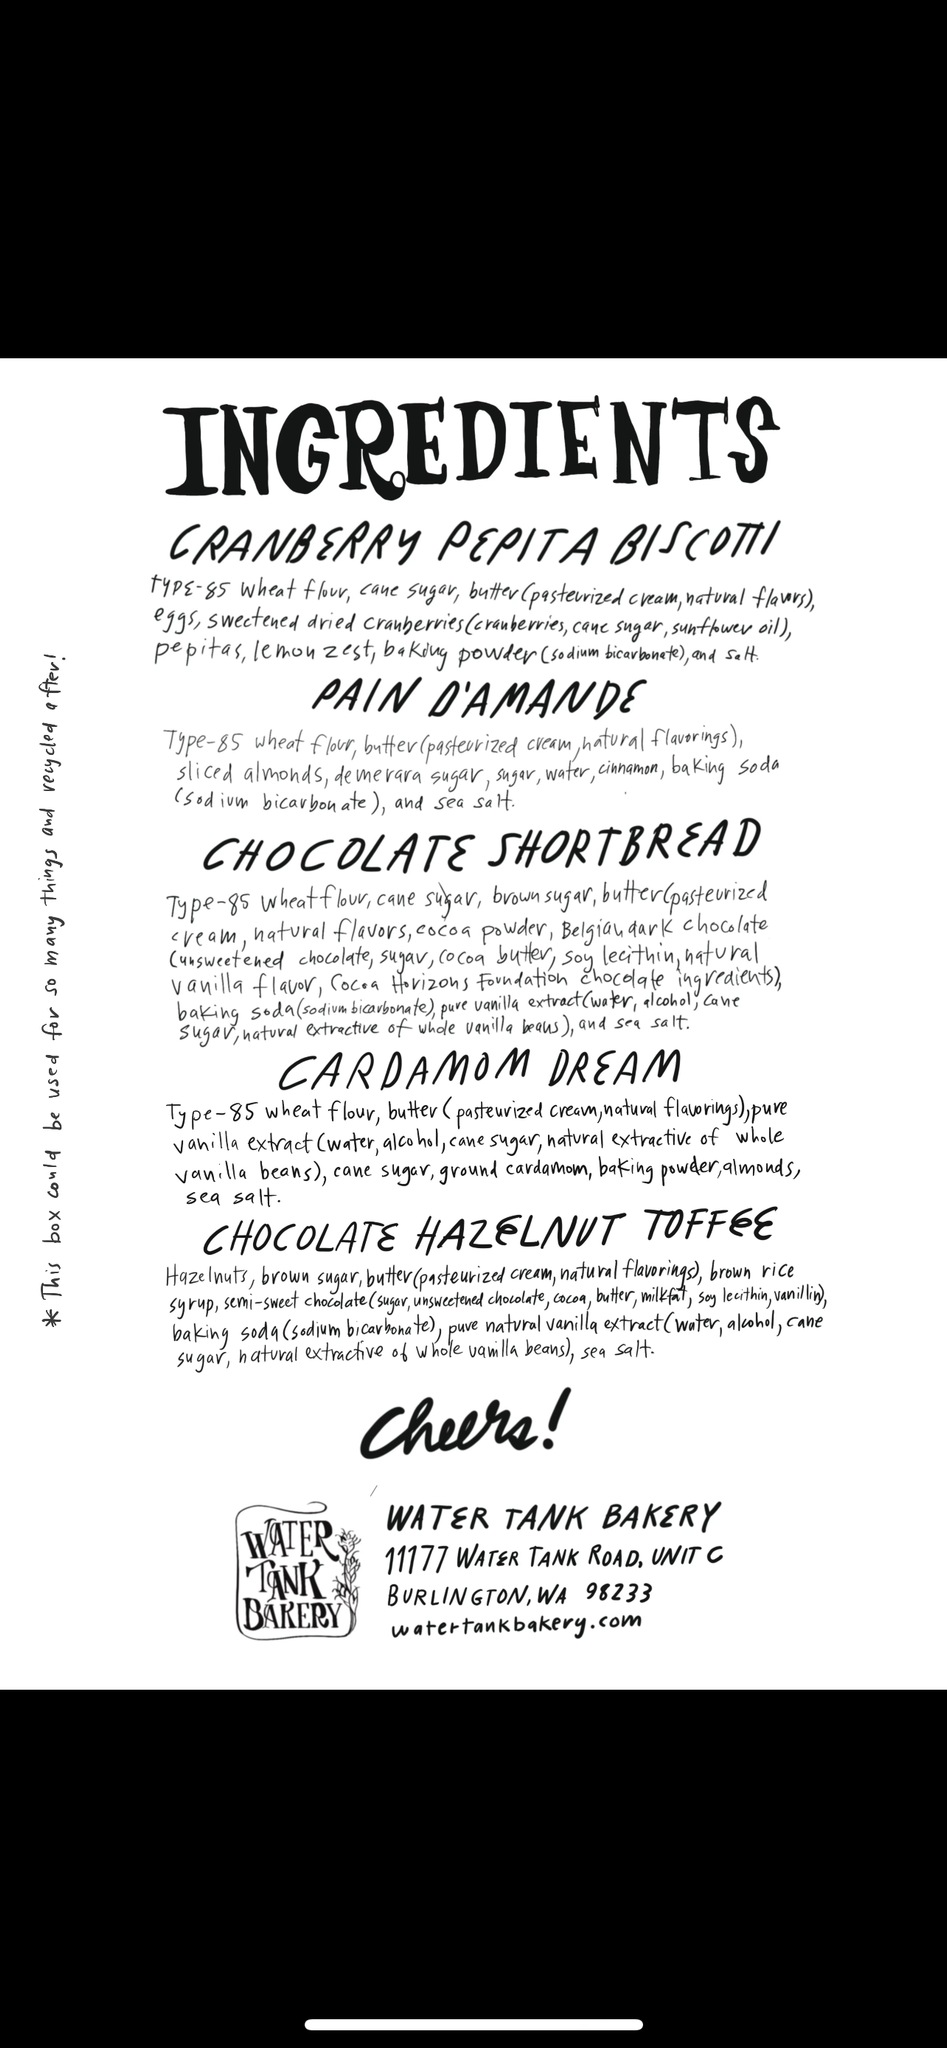 INGREDIENTS
CRANBERRY PEPITA BISCOTTI
TYPE-85 wheat flour, cane sugar, butter (pasteurized cream, natural flavors),
eggs, sweetened dried cranberries (cranberries, cane sugar, sunflower oil),
pepitas, lemon zest, baking powder (sodium bicarbonate), and salt.
PAIN D'AMANDE
Type-85 wheat flour, butter (pasteurized cream, natural flavorings),
sliced almonds, demerara sugar, sugar, water, cinnamon, baking soda
(sodium bicarbonate), and sea salt.
CHOCOLATE SHORTBREAD
Type-85 wheat flour, cane sugar, brown sugar, butter (pasteurized
cream, natural flavors, cocoa powder, Belgian dark chocolate
(unsweetened chocolate, sugar, cocoa butter, soy lecithin, natural
vanilla flavor, Cocoa Horizons Foundation chocolate ingredients),
baking soda (sodium bicarbonate), pure vanilla extract (water, alcohol, cane
sugar, natural extractive of whole vanilla beans), and sea salt.
CARDAMOM DREAM
Type-85 wheat flour, butter (pasteurized cream, natural flavorings), pure
vanilla extract (water, alcohol, cane sugar, natural extractive of whole
vanilla beans), cane sugar, ground cardamom, baking powder, almonds,
sea salt.
CHOCOLATE HAZELNUT TOFFEE
Hazelnuts, brown sugar, butter (pasteurized cream, natural flavorings), brown rice
syrup, semi-sweet chocolate (sugar, unsweetened chocolate, cocoa, butter, milkfat, soy lecithin, vanillin),
baking soda (sodium bicarbonate), pure natural vanilla extract (water, alcohol, cane
sugar, natural extractive of whole vanilla beans), sea salt.
Cheers!
WATER
TANK
BAKERY
WATER TANK BAKERY
11177 WATER TANK ROAD, UNIT C
BURLINGTON, WA 98233
watertankbakery.com
* This box could be used for so many things and recycled after!